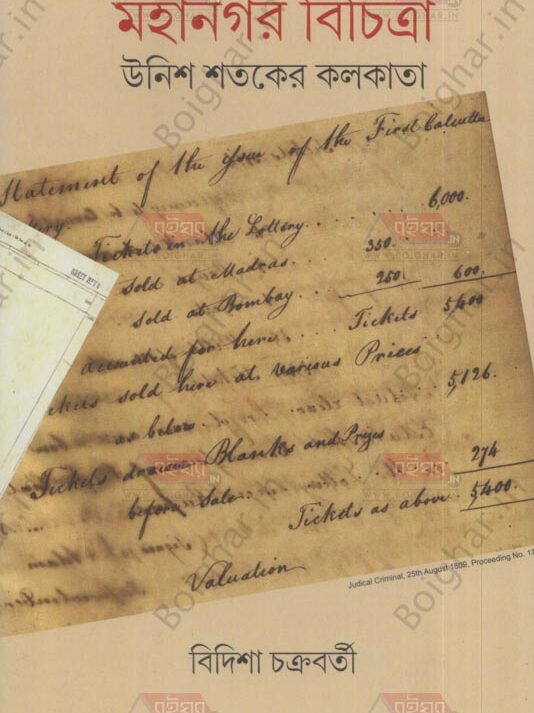 মহানগর বিচিত্রা
উনিশ শতকের কলকাতা
Statement of the issue of the First Calcutta
Tickets in the Lottery . . . . 6,000.
sold at Madras . . . 350.
sold at Bombay . . . 250. 600.
accounted for here . . . . Tickets 5,400
sold here at various Prices
as below . . . 5,126.
Tickets drawn Blanks and Prizes
before Sale . . . 274
Tickets as above . 5,400.
Valuation
Judical Criminal, 25th August 1809, Proceeding No.
বিদিশা চক্রবর্তী
Boighar.in
বইঘর.IN
WWW.BOIGHAR.IN